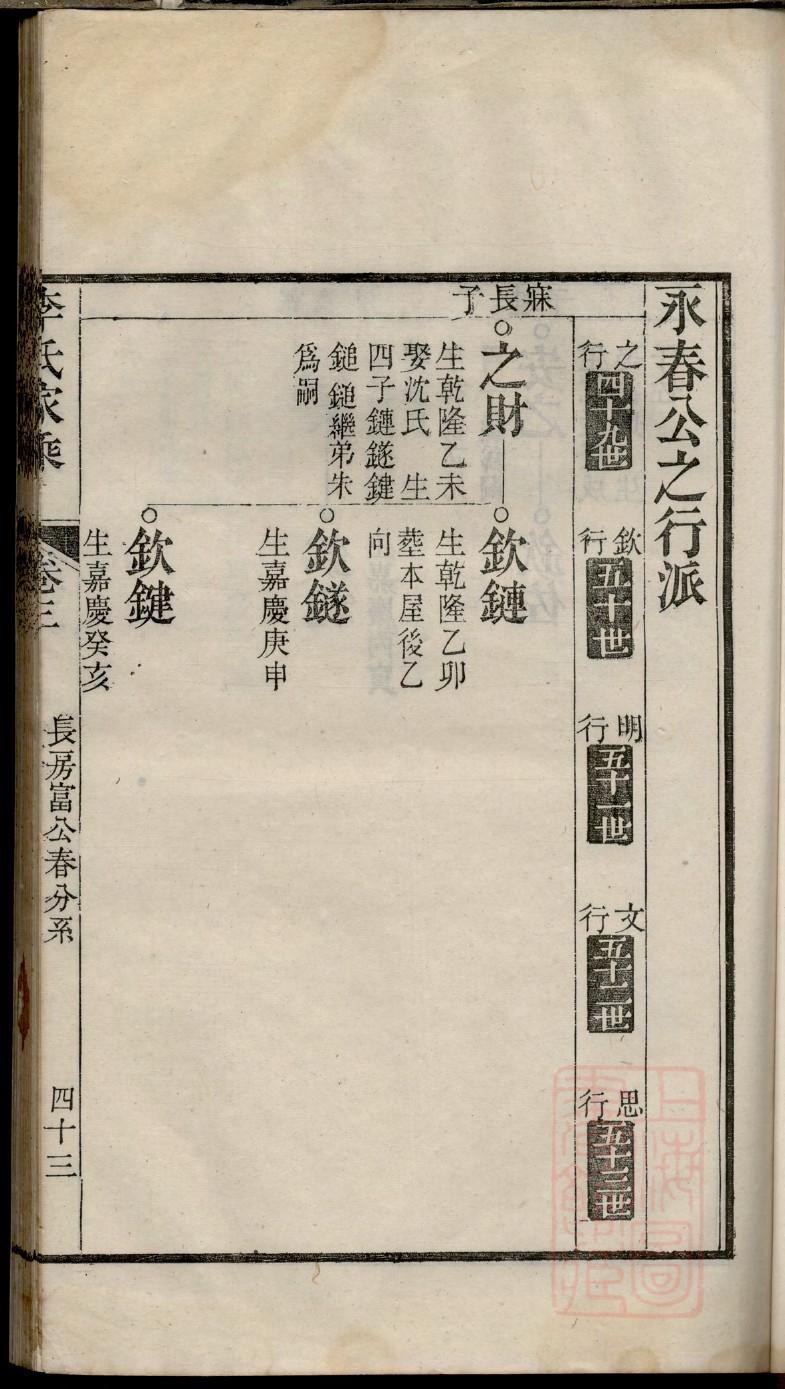 永春公之行派
之行 四十九世
欽行 五十世
明行 五十一世
文行 五十二世
思行 五十三世
寐長子
之財
生乾隆乙未
娶沈氏 生
四子鏈鐩鍵
鎚 鎚繼弟朱
爲嗣
欽鏈
生乾隆乙卯
塟本屋後乙
向
欽鐩
生嘉慶庚申
欽鍵
生嘉慶癸亥
李氏家乘
卷三
長房富公春分系
四十三